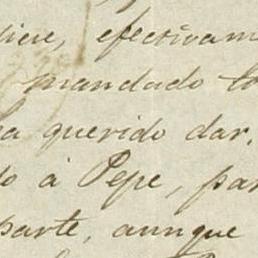 efectivam
mandado
querido dar.
à Pepe, par
parte, aunque